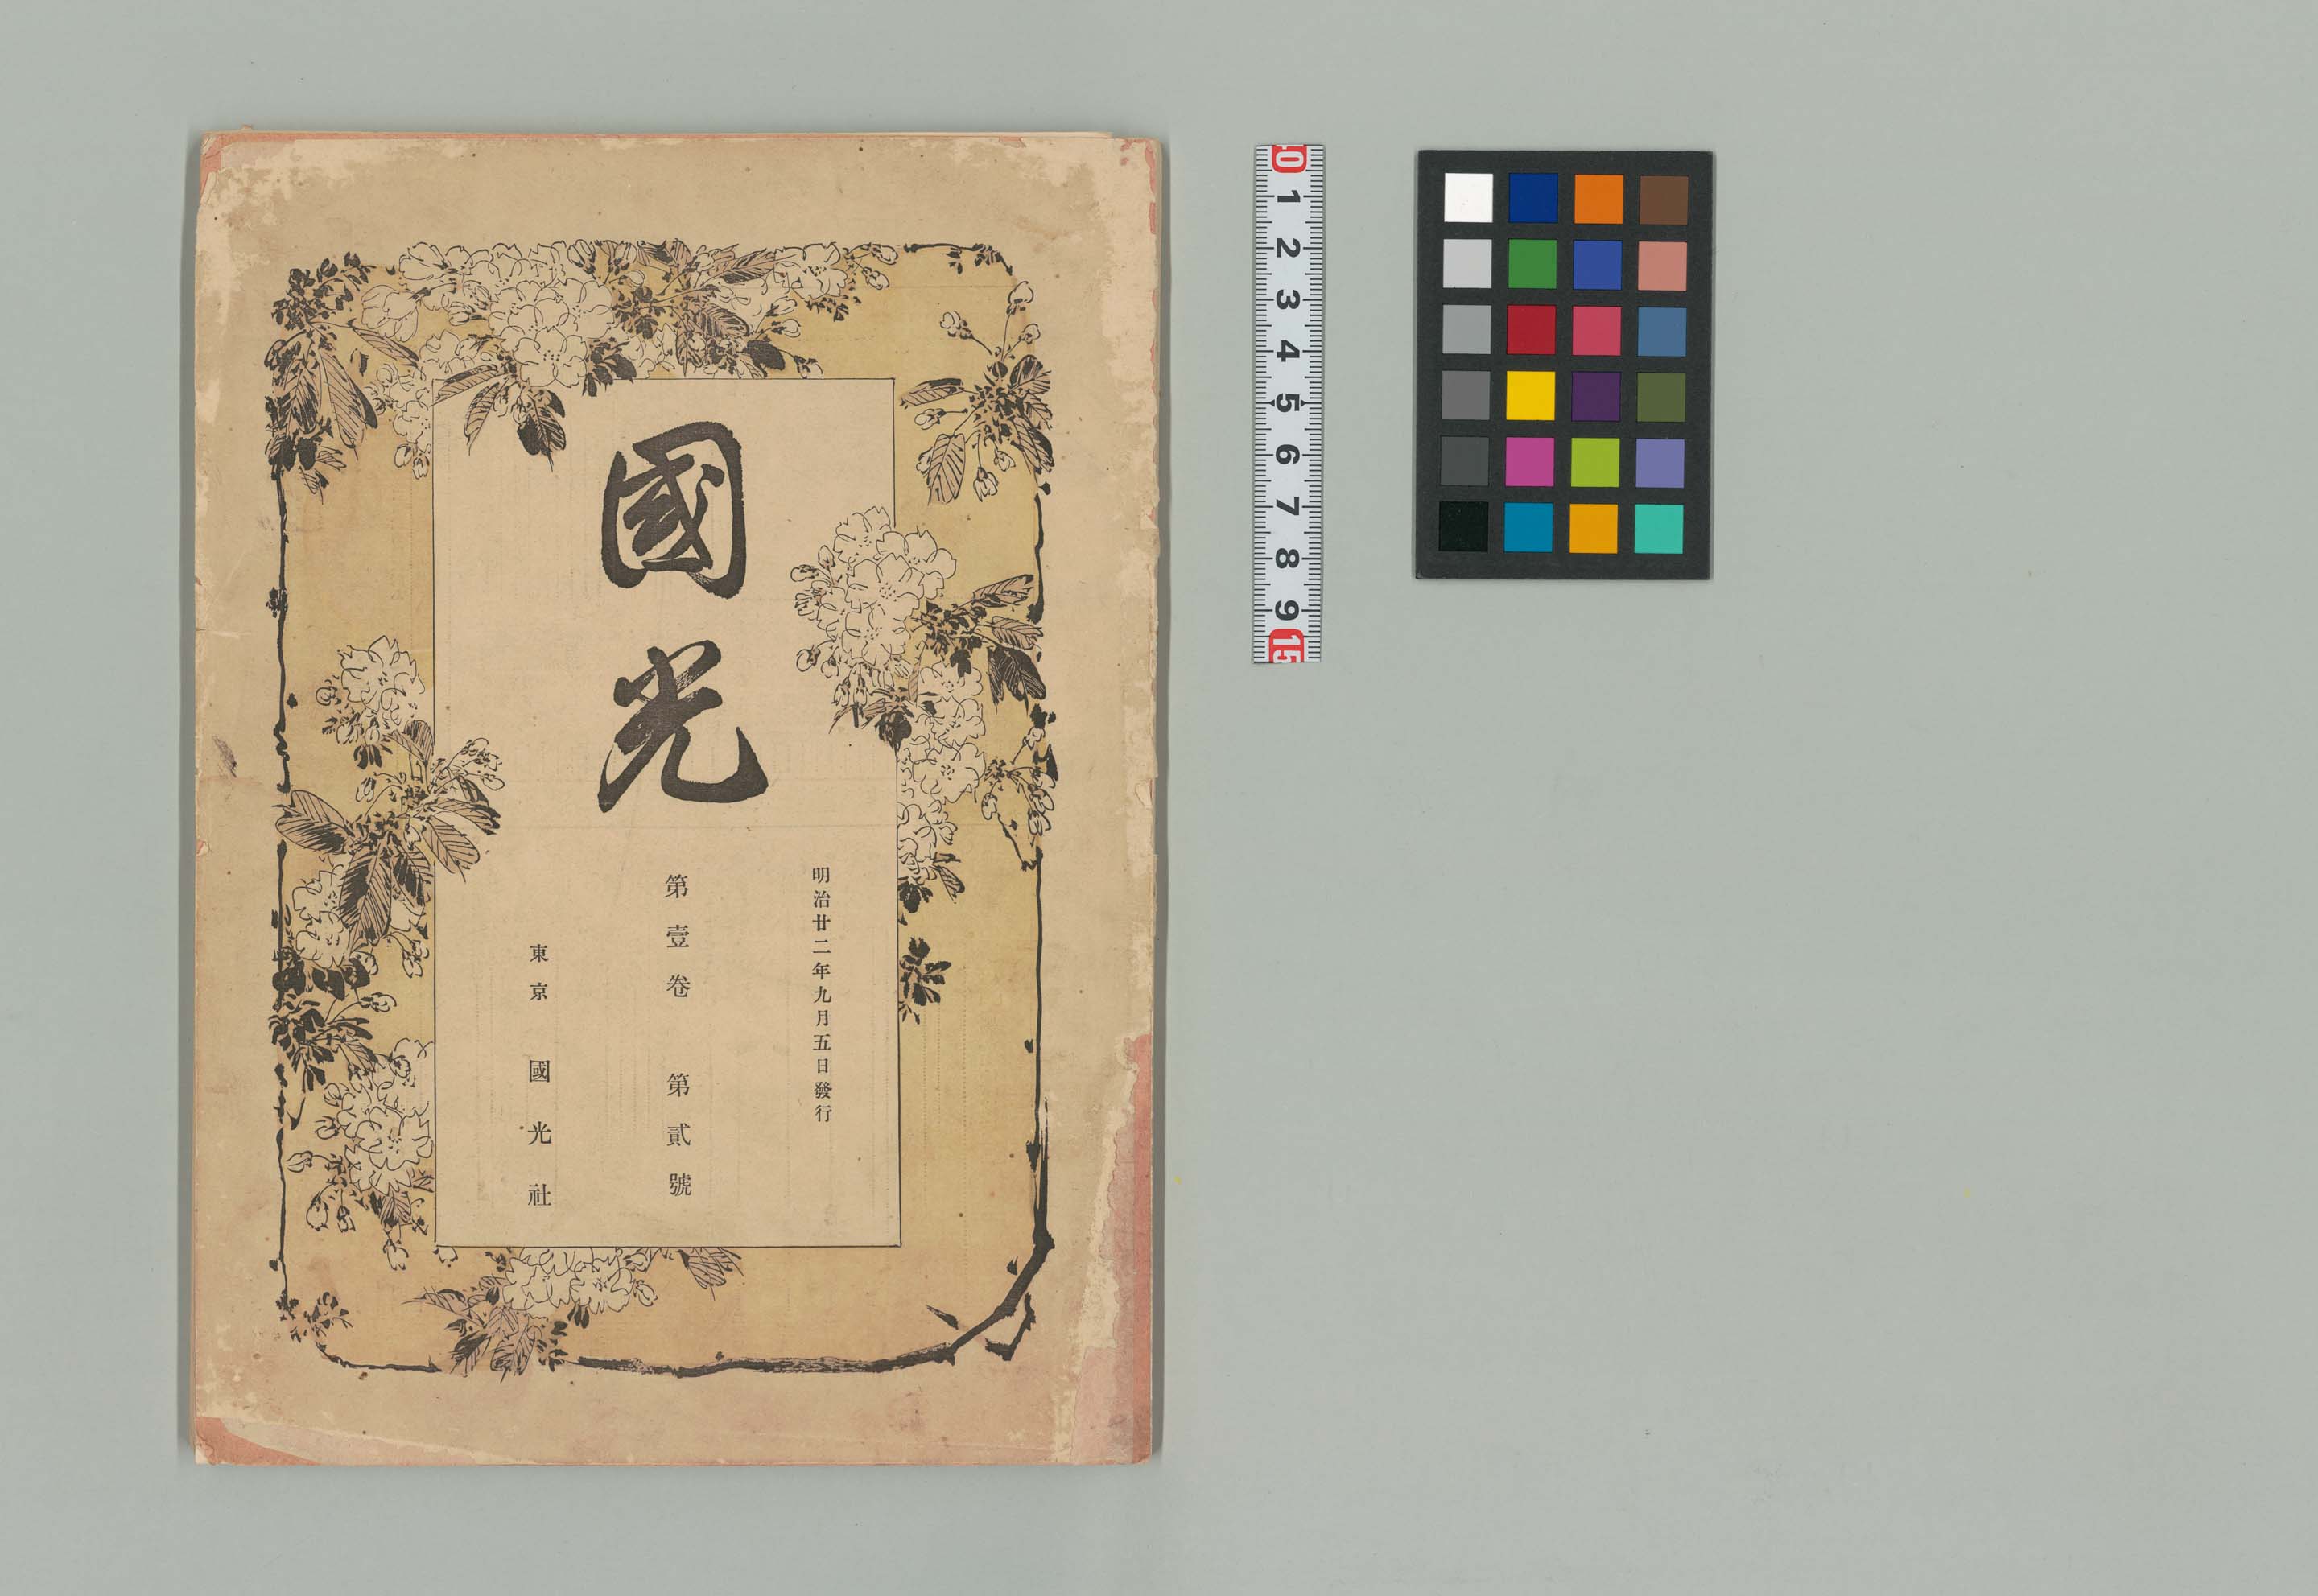 明治廿二年九月五日發行
國光
第壹卷　第貳號
東京　國光社
0 1 2 3 4 5 6 7 8 9 15